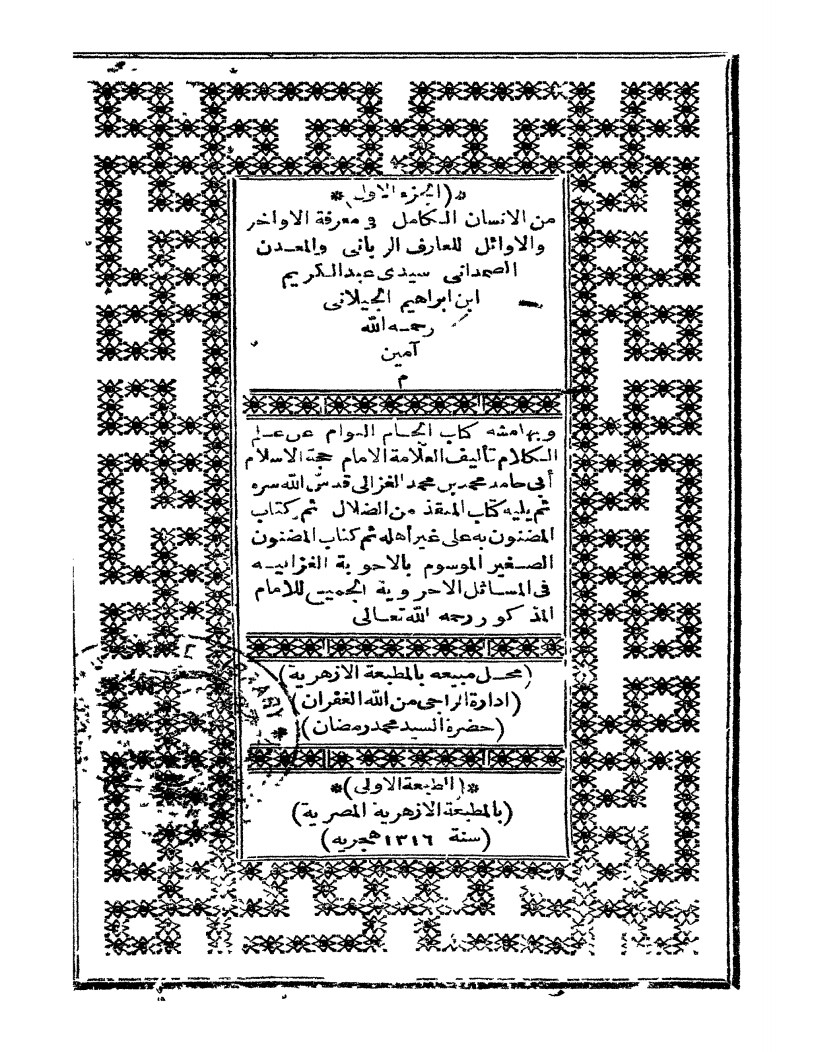 *(الجزء الاول)*
من الانسان الكامل في معرفة الاواخر
والاوائل للعارف الرباني والمعدن
الصمداني سيدى عبدالكريم
ابن ابراهيم الجيلانى
رحمه الله
آمين
م
وبهامشه كتاب الجام العوام عن علم
الكلام تأليف العلامة الامام حجة الاسلام
أبى حامد محمد بن محمد الغزالى قدس الله سره
ثم يليه كتاب المنقذ من الضلال ثم كتاب
المضنون به على غير أهله ثم كتاب المضنون
الصغير الموسوم بالاجوبة الغزاليه
فى المسائل الاخروية الجميع للامام
المذكور رحمه الله تعالى
(محل مبيعه بالمطبعة الازهرية)
(ادارة الراجى من الله الغفران)
(حضرة السيد محمد رمضان)
*(الطبعة الاولى)*
(بالمطبعة الازهرية المصرية)
(سنة ١٣١٦ هجريه)